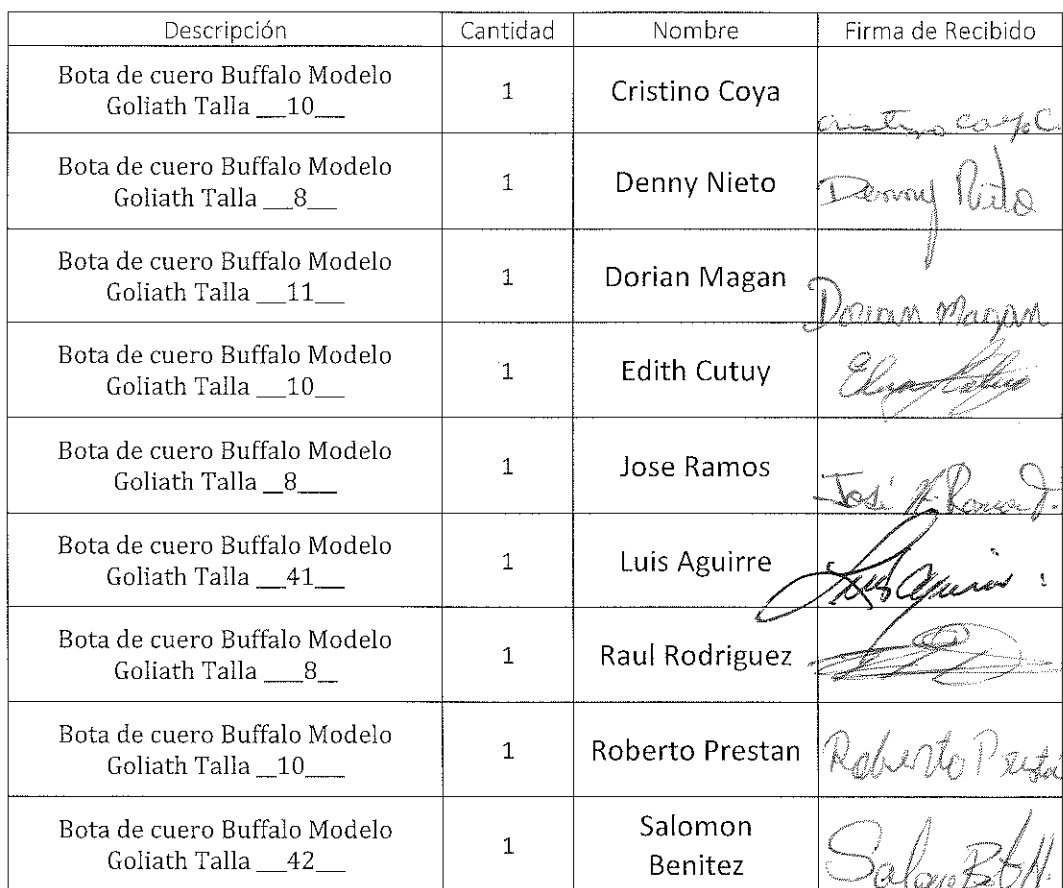 Descripción Cantidad Nombre Firma de Recibido
Bota de cuero Buffalo Modelo
Goliath Talla __10__ 1 Cristino Coya
Cristino Coya C.
Bota de cuero Buffalo Modelo
Goliath Talla __8__ 1 Denny Nieto Denny Nieto
Bota de cuero Buffalo Modelo
Goliath Talla __11__ 1 Dorian Magan
Dorian Magan
Bota de cuero Buffalo Modelo
Goliath Talla __10__ 1 Edith Cutuy
Bota de cuero Buffalo Modelo
Goliath Talla _8___ 1 Jose Ramos
José
Bota de cuero Buffalo Modelo
Goliath Talla __41__ 1 Luis Aguirre
Luis Aguirre
Bota de cuero Buffalo Modelo
Goliath Talla ___8_ 1 Raul Rodriguez
Bota de cuero Buffalo Modelo
Goliath Talla _10___ 1 Roberto Prestan Roberto
Bota de cuero Buffalo Modelo
Goliath Talla __42__ 1 Salomon
Benitez